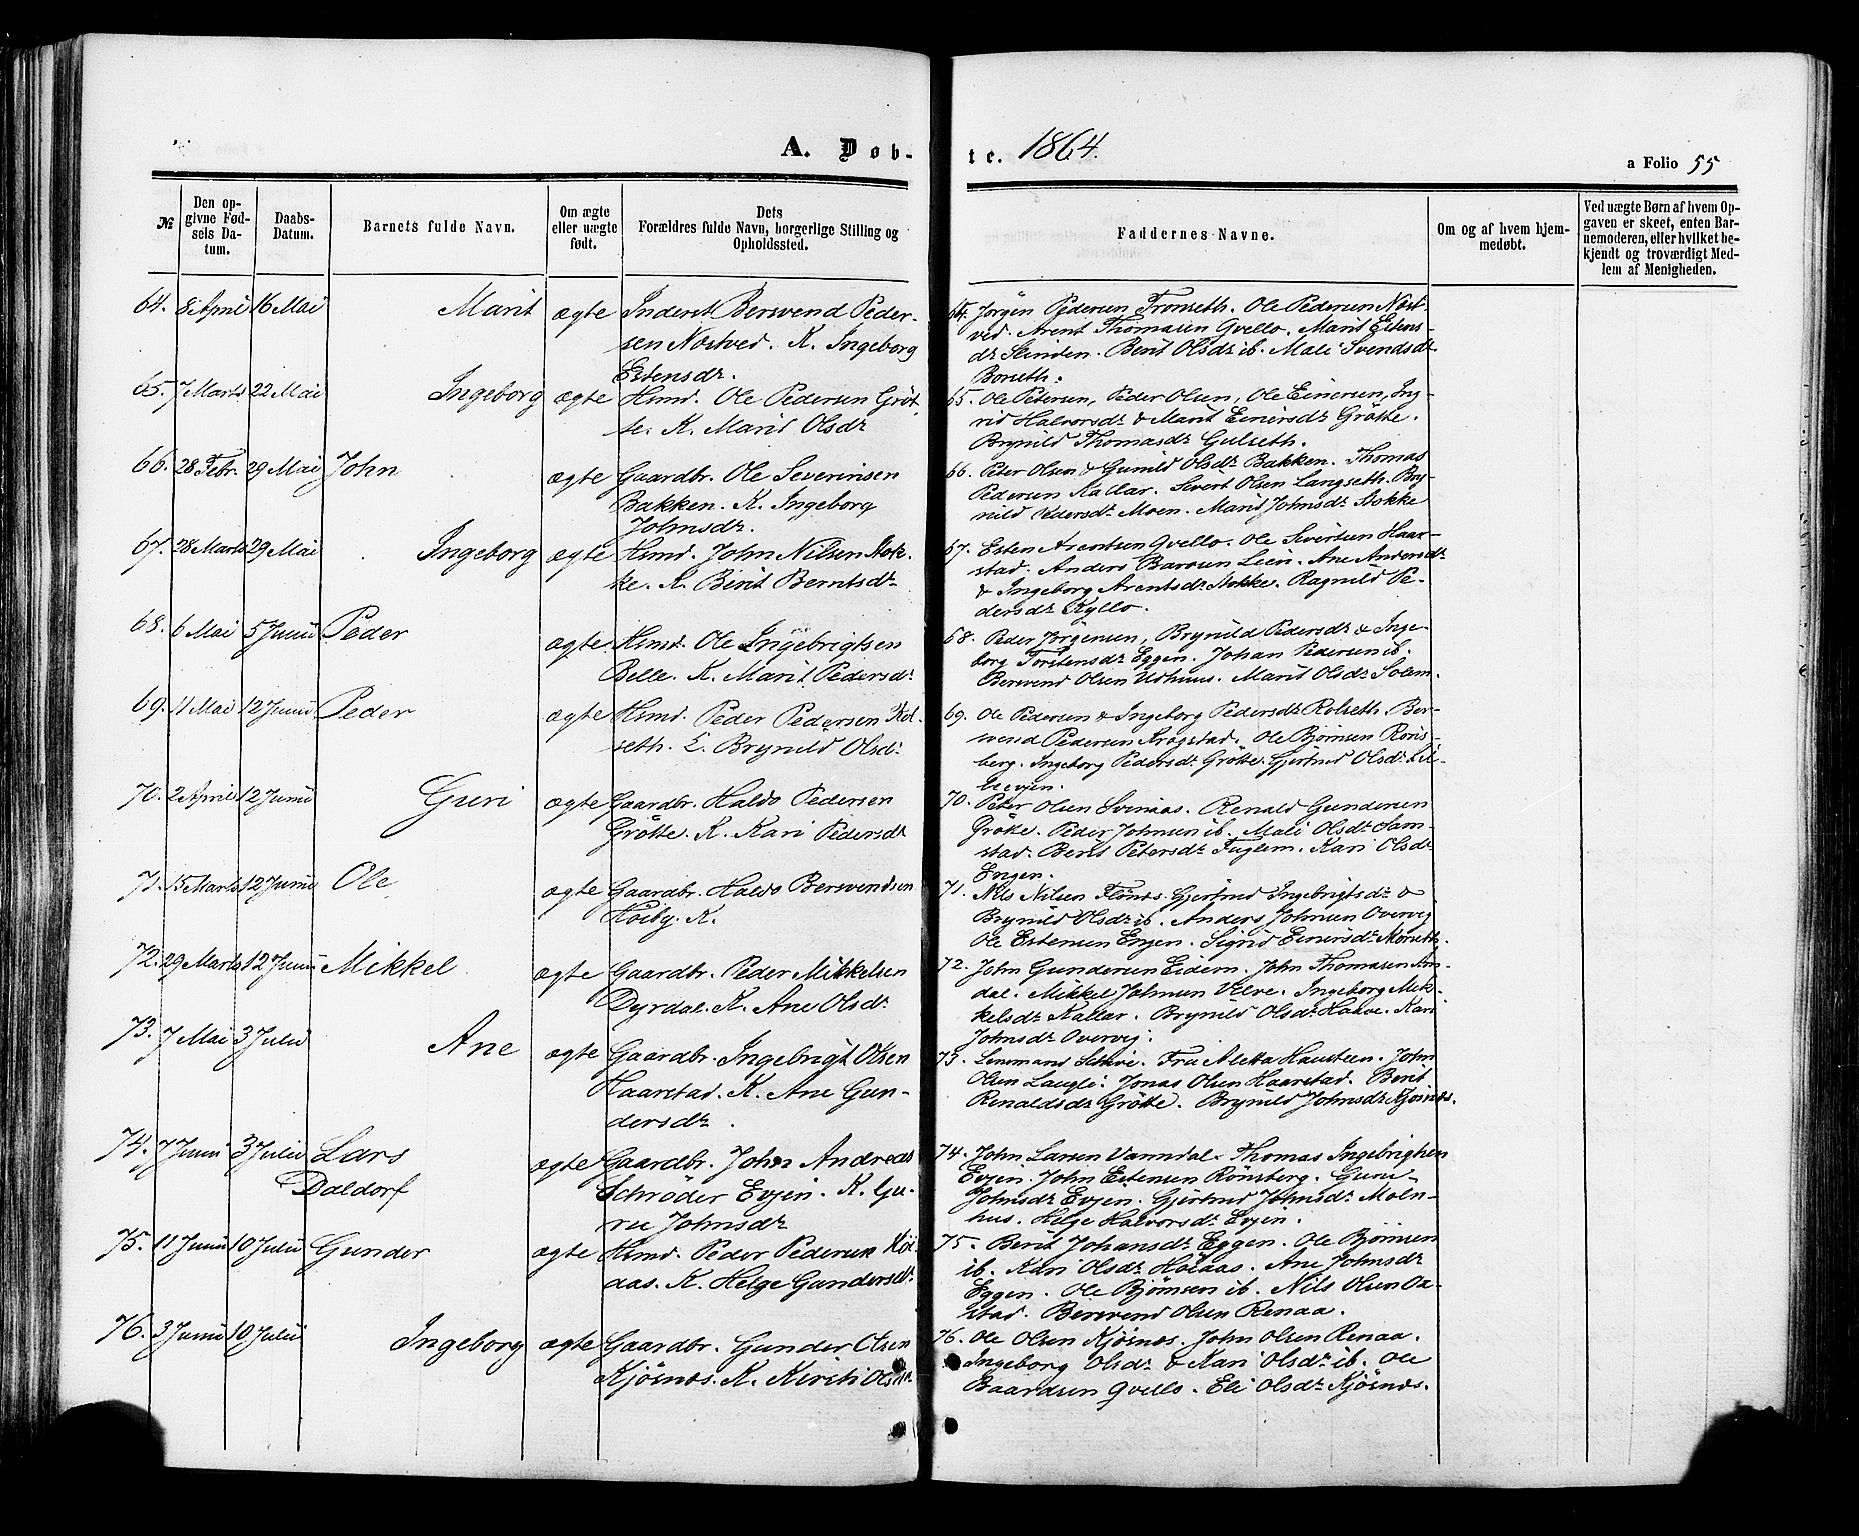 A. Døb-
te. 1864.
a Folio 55
№
Den op-
givne Fød-
sels Da-
tum.
Daabs-
Datum.
Barnets fulde Navn.
Om ægte
eller uægte
født.
Dets
Forældres fulde Navn, borgerlige Stilling og
Opholdssted.
Faddernes Navne.
Om og af hvem hjem-
medøbt.
Ved uægte Børn af hvem Op-
gaven er skeet, enten Bar-
nemoderen, eller hvilket be-
kjendt og troværdigt Med-
lem af Menigheden.
64. 8 April 16 Mai Marit ægte Inderst Bersvend Peder-
sen Nostved. K. Ingeborg
Estensdr.
64. Jörgen Pedersen Tronseth. Ole Pedersen Nost-
ved. Arent Thomasen Qvello. Marit Estens-
dr Slinden. Berit Olsdr ib. Mali Svendsdr
Borseth.
65. 7 Marts 22 Mai Ingeborg ægte Hsmd. Ole Pedersen Gröt-
te. K. Marit Olsdr
65. Ole Petersen, Peder Olsen, Ole Einersen, Ing-
rid Halvorsdr & Marit Einersdr Grötte.
Brynild Thomasdr Gulseth.
66. 28 Febr. 29 Mai John ægte Gaardbr. Ole Severinsen
Bakken. K. Ingeborg
Johnsdr.
66. Peter Olsen & Gunild Olsdr Bakken. Thomas
Pedersen Kallar. Sivert Olsen Langseth. Bry-
nild Pedersdr Moen. Marit Johnsdr Stokke
67. 28 Marts 29 Mai Ingeborg ægte Hsmd. John Nilsen Stok-
ke. K. Berit Berntsdr
67. Esten Arentsen Qvello. Ole Sivertsen Haar-
stad. Anders Larsen Lien. Ane Andersdr
& Ingeborg Arentsdr Stokke. Ragnild Pe-
dersdr Kyllo.
68. 6 Mai 5 Junii Peder ægte Hsmd. Ole Ingebrigtsen
Belle. K. Marit Pedersdr
68. Peder Jörgensen, Brynild Pedersdr & Inge-
borg Torstensdr Eggen. Johan Pedersen ib.
Bersvend Olsen Udhuus. Marit Olsdr Solem.
69. 11 Mai 12 Junii Peder ægte Hsmd. Peder Pedersen Rol-
seth. K. Brynild Olsdr
69. Ole Pedersen & Ingeborg Pedersdr Rolseth. Ber-
svend Pedersen Krogstad. Ole Bjørnsen Röns-
berg. Ingeborg Pedersdr Grötte. Gjertrud Olsdr Lil-
leevjen.
70. 2 April 12 Junii Guri ægte Gaardbr. Haldo Pedersen
Grötte. K. Kari Pedersdr
70. Peter Olsen Svinaas. Renald Gundersen
Grötte. Peder Johnsen ib. Mali Olsdr Sam-
stad. Berit Petersdr Fuglem. Kari Olsdr
Engen.
71. 15 Marts 12 Junii Ole ægte Gaardbr. Haldo Bersvendsen
Höiby. K.
71. Nils Nilsen Flönes. Gjertrud Ingebrigtsdr &
Brynild Olsdr ib. Anders Johnsen Overvij
Ole Estensen Engen. Sigrid Einersdr Morseth.
72. 29 Marts 12 Junii Mikkel ægte Gaardbr. Peder Mikkelsen
Dyrdal. K. Ane Olsdr
72. John Gundersen Eidem. John Thomasen Am-
dal. Mikkel Johnsen Velve. Ingeborg Mik-
kelsdr Kallar. Brynild Olsdr Haave. Kari
Johnsdr Overvij.
73. 7 Mai 3 Julii Ane ægte Gaardbr. Ingebrigt Olsen
Haarstad. K. Ane Gun-
dersdr.
73. Lensmand Schive. Fru Aletta Hansteen. John
Olsen Laugli. Jonas Olsen Haarstad. Berit
Renaldsdr Grötte. Brynild Johnsdr Kjösnes.
74. 7 Junii 3 Julii Lars
Daldorf ægte Gaardbr. John Andreas
Schröder Evjen. K. Gu-
ru Johnsdr
74. John Larsen Varmdal. Thomas Ingebrigtsen
Evjen. John Estensen Rönsberg. Guru
Johnsdr Evjen. Gjertrud Johnsdr Moen-
hus. Helge Halvorsdr Evjen.
75. 11 Junii 10 Julii Gunder ægte Hsmd. Peder Pedersen Höi-
aas. K. Helge Gundersdr
75. Berit Johansdr Eggen. Ole Bjørnsen
ib. Kari Olsdr Höiaas. Ane Johnsdr
Eggen. Ole Bjørnsen ib. Nils Olsen Oa-
stad. Bersvend Olsen Renaa.
76. 3 Junii 10 Julii Ingeborg ægte Gaardbr. Gunder Olsen
Kjösnes. K. Kirsti Olsdr
76. Ole Olsen Kjösnes. John Olsen Renaa.
Ingeborg Olsdr & Kari Olsdr ib. Ole
Baardsen Qvello. Eli Olsdr Kjösnes.